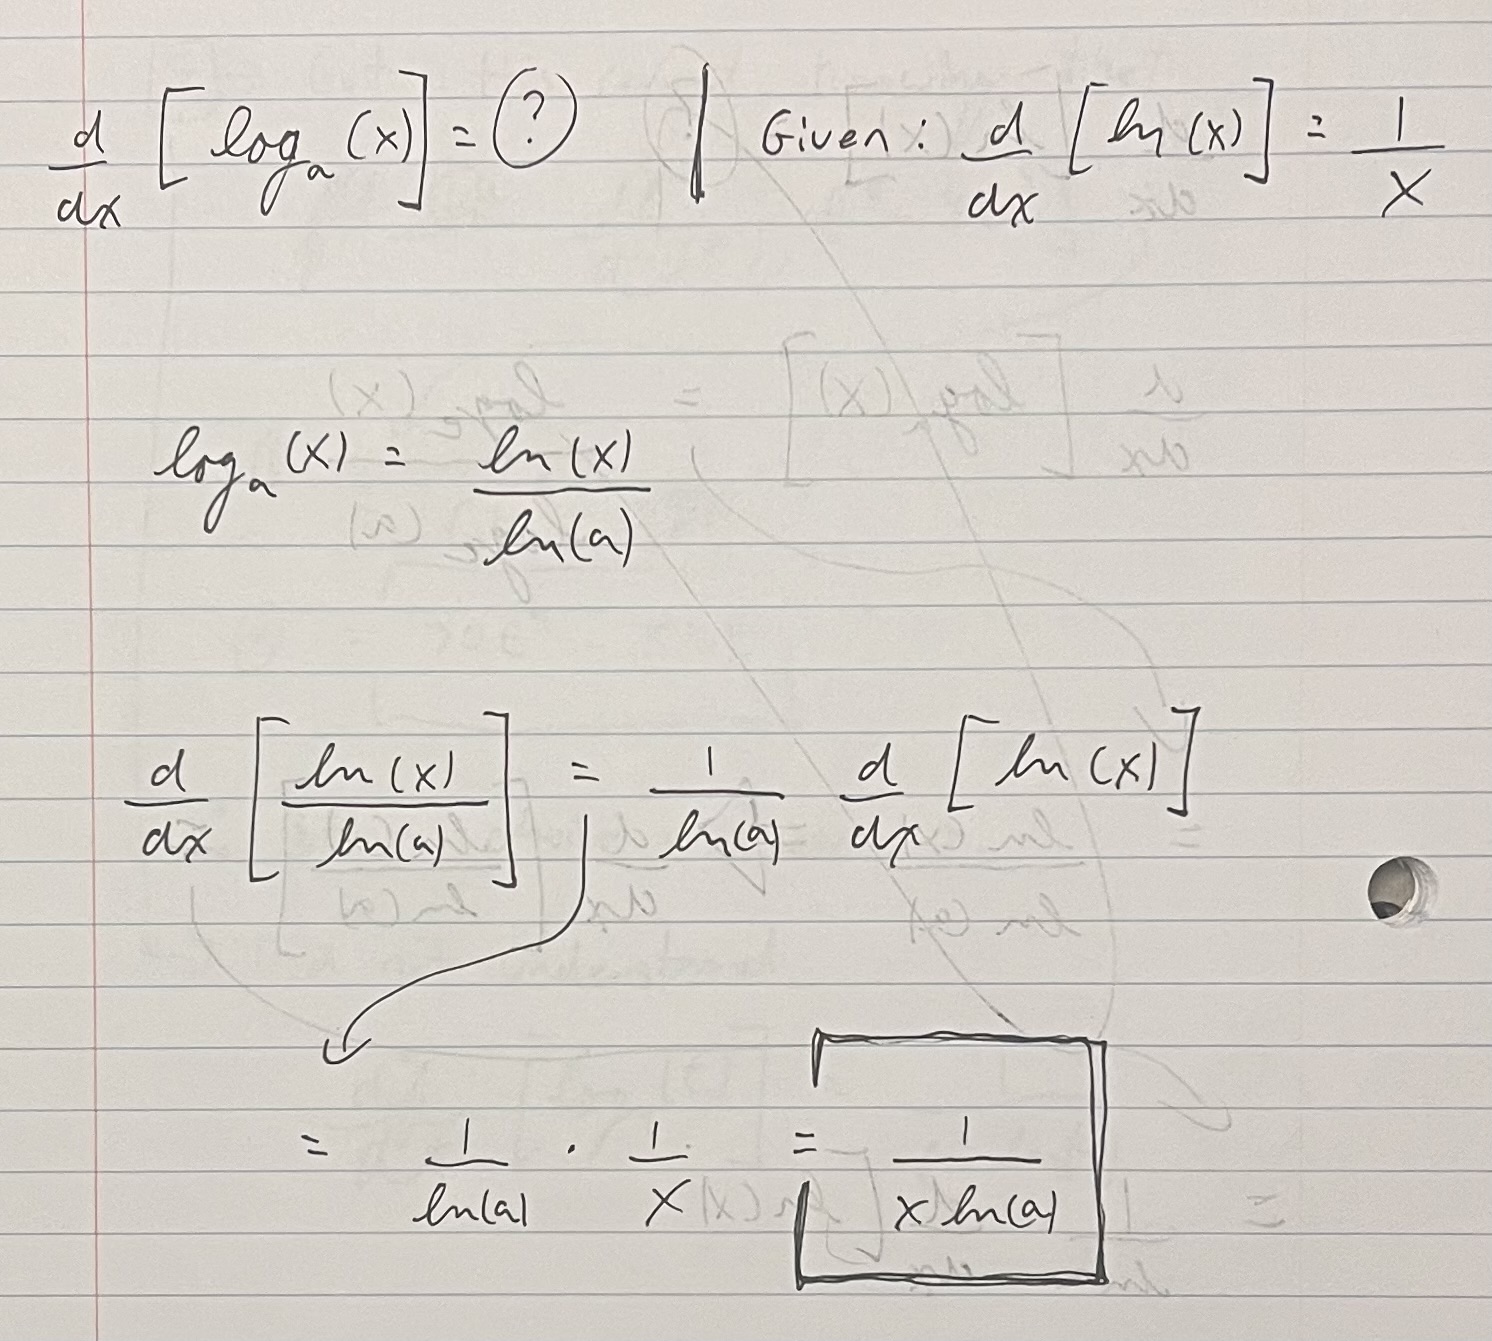 d/dx [log_a (x)] = ? | Given: d/dx [ln (x)] = 1/x
log_a (x) = ln (x)/ln(a)
d/dx [ln (x)/ln(a)] = 1/ln(a) d/dx [ln (x)]
= 1/ln(a) · 1/x = 1/(x ln(a))